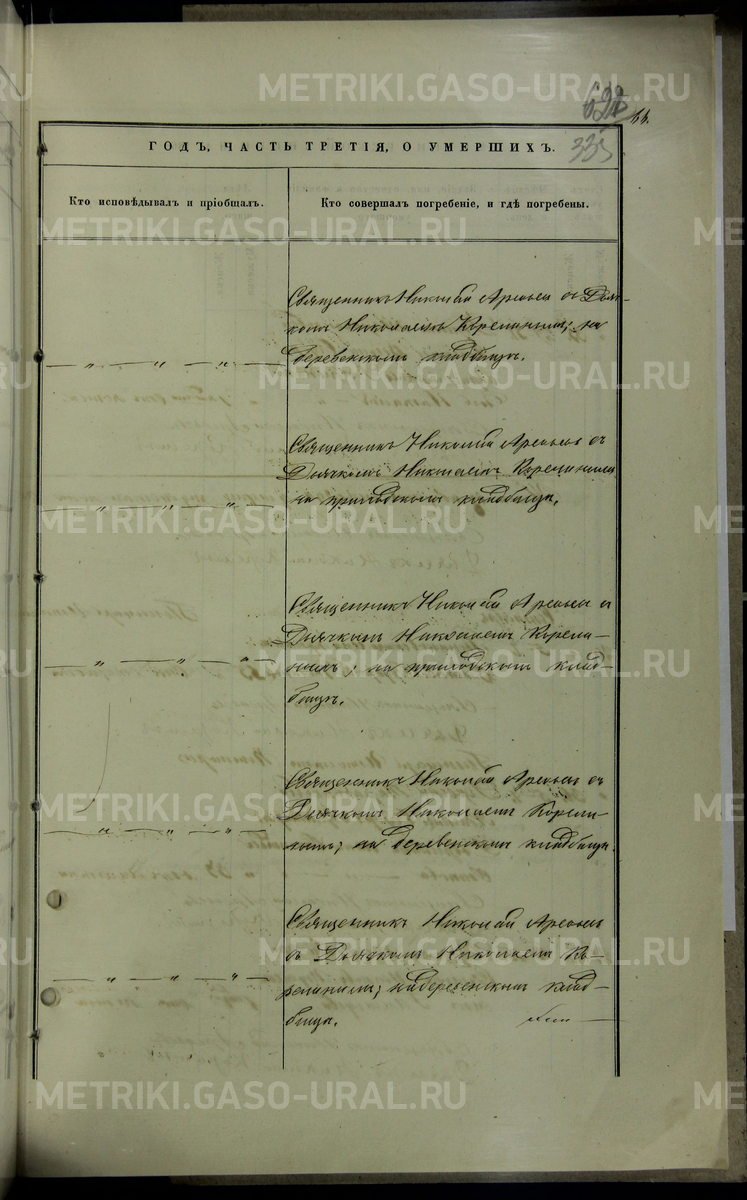 622
335
64.
ГОДЪ, ЧАСТЬ ТРЕТІЯ, О УМЕРШИХЪ.
Кто исповѣдывалъ и пріобщалъ.
Кто совершалъ погребеніе, и гдѣ погребены.
Священникъ Николай съ Дьяч-
комъ Николаемъ Корелинымъ; на
— „ — „ — „ —
деревенскомъ кладбищѣ.
Священникъ Николай съ
Дьячкомъ Николаемъ Корелинымъ
— „ — „ — „ —
на приходскомъ кладбищѣ.
Священникъ Николай съ
Дьячкомъ Николаемъ Корели-
— „ — „ — „ —
нымъ; на приходскомъ клад-
бищѣ.
Священникъ Николай съ
Дьячкомъ Николаемъ Корели-
— „ — „ — „ —
нымъ; на деревенскомъ кладбищѣ.
Священникъ Николай
съ Дьячкомъ Николаемъ Ко-
— „ — „ — „ —
релинымъ; на деревенскомъ клад-
бищѣ.
METRIKI.GASO-URAL.RU